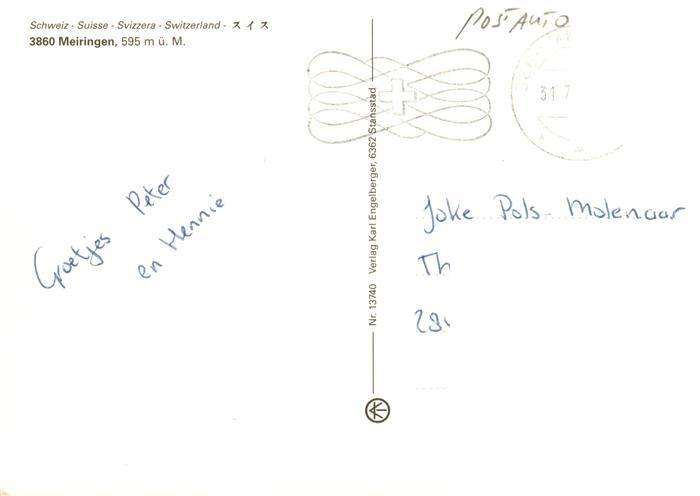 Schweiz - Suisse - Svizzera - Switzerland - スイス
3860 Meiringen, 595 m ü. M.
POSTAUTO
31.7
Groetjes Peter
en Hennie
Nr. 13740 Verlag Karl Engelberger, 6362 Stansstad
Joke Pols - Molenaar
Th